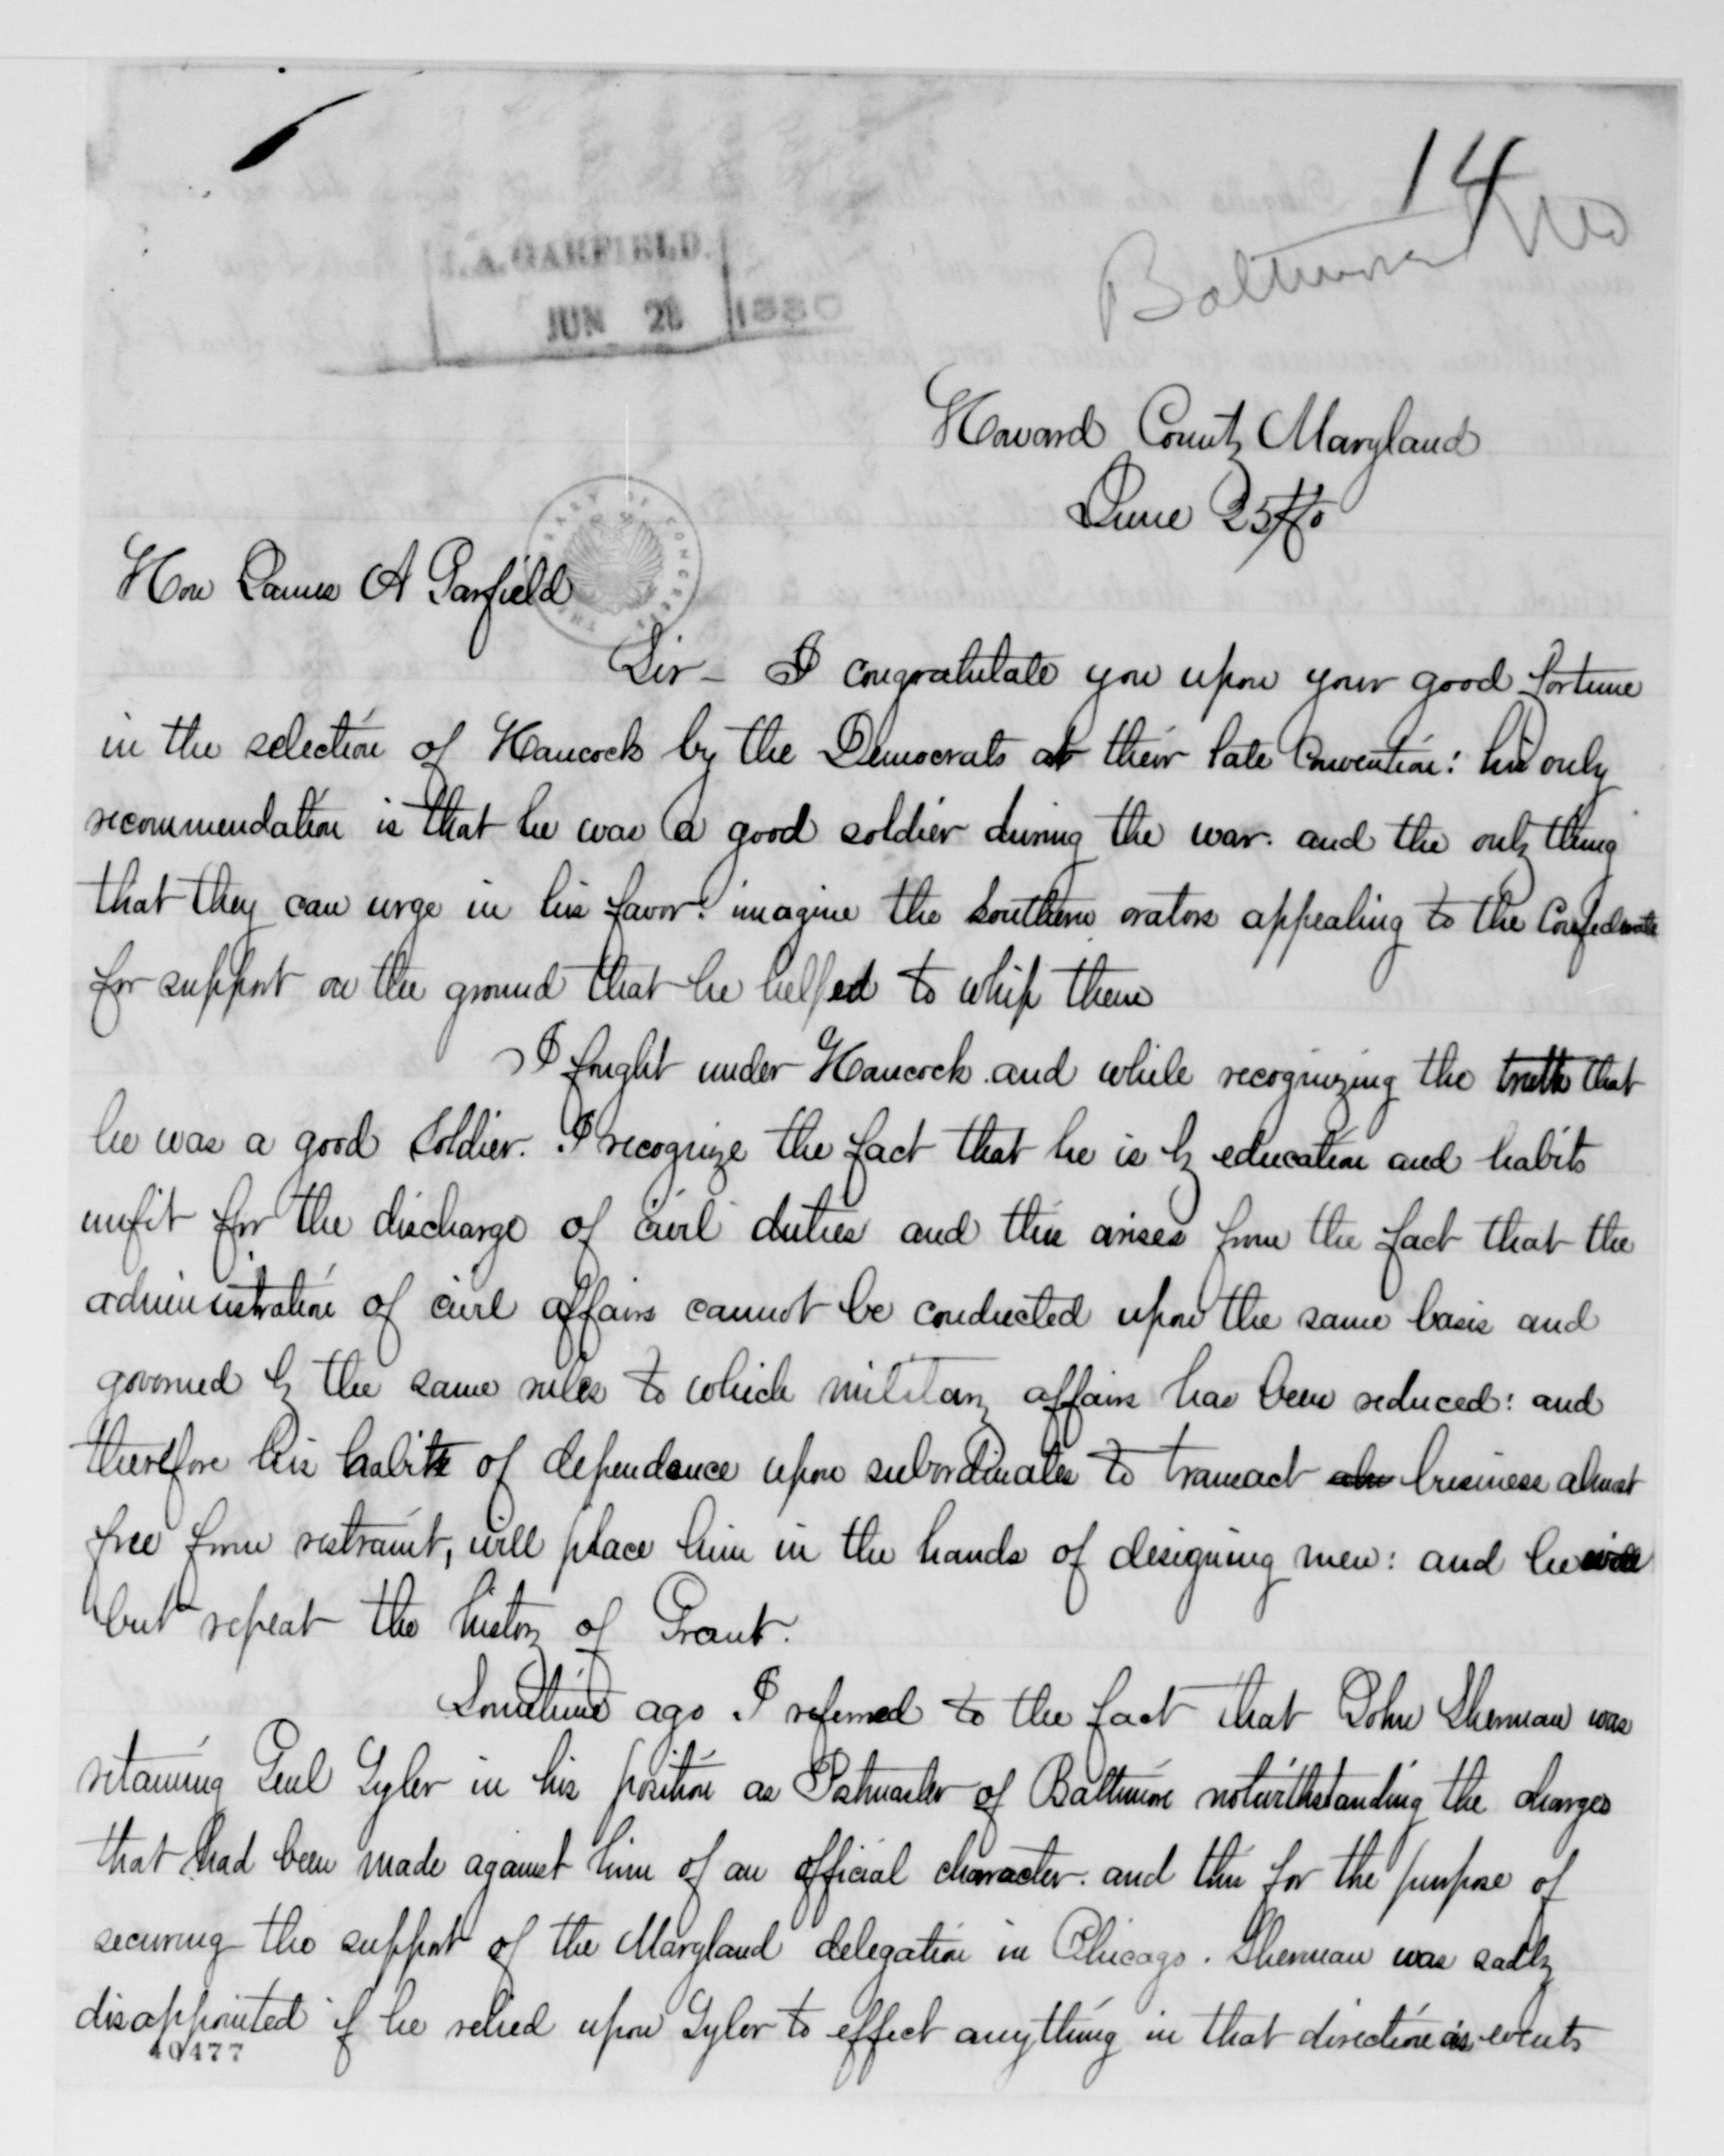 14
Baltimore Md
J.A. GARFIELD.
JUN 28 1880
Howard County Maryland
June 25th/80
THE LIBRARY OF CONGRESS
Hon James A Garfield
Sir - I congratulate you upon your good fortune
in the selection of Hancock by the Democrats at their late Convention: his only
recommendation is that he was a good soldier during the war. and the only thing
that they can urge in his favor: imagine the Southern orators appealing to the Confederate
for support on the ground that he helped to whip them
I fought under Hancock. and while recognizing the truth that
he was a good soldier. I recognize the fact that he is by education and habits
unfit for the discharge of civil duties and this arises from the fact that the
administration of civil affairs cannot be conducted upon the same basis and
governed by the same rules to which military affairs has been reduced: and
therefore his habits of dependance upon subordinates to transact business almost
free from restraint, will place him in the hands of designing men: and he will
but repeat the history of Grant.
Sometime ago I referred to the fact that John Sherman was
retaining Genl Tyler in his position as Postmaster of Baltimore notwithstanding the charges
that had been made against him of an official character. and this for the purpose of
securing the support of the Maryland delegation in Chicago. Sherman was sadly
disappointed if he relied upon Tyler to effect anything in that direction as events
40477